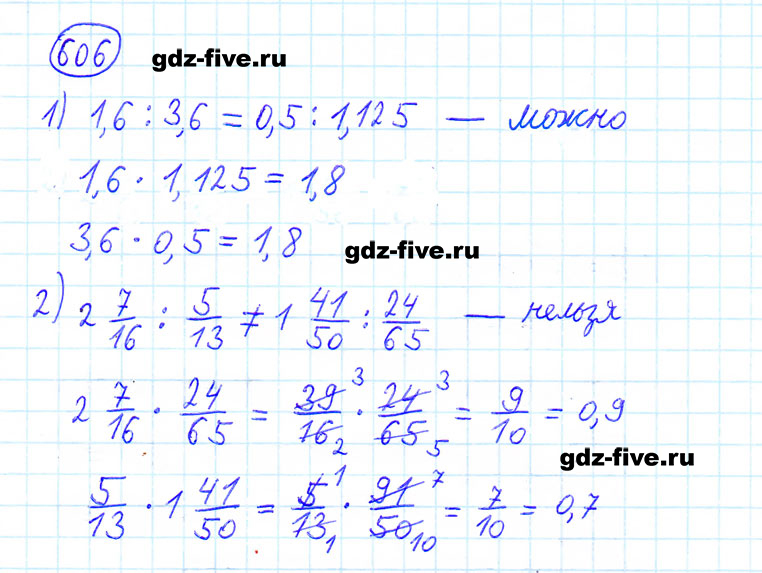 606 gdz-five.ru
1) 1,6 : 3,6 = 0,5 : 1,125 — можно
1,6 · 1,125 = 1,8
3,6 · 0,5 = 1,8 gdz-five.ru
2) 2 7/16 : 5/13 ≠ 1 41/50 : 24/65 — нельзя
2 7/16 · 24/65 = 39/16 2 3 · 24/65 5 3 = 9/10 = 0,9
gdz-five.ru
5/13 · 1 41/50 = 5/13 1 1 · 91/50 10 7 = 7/10 = 0,7